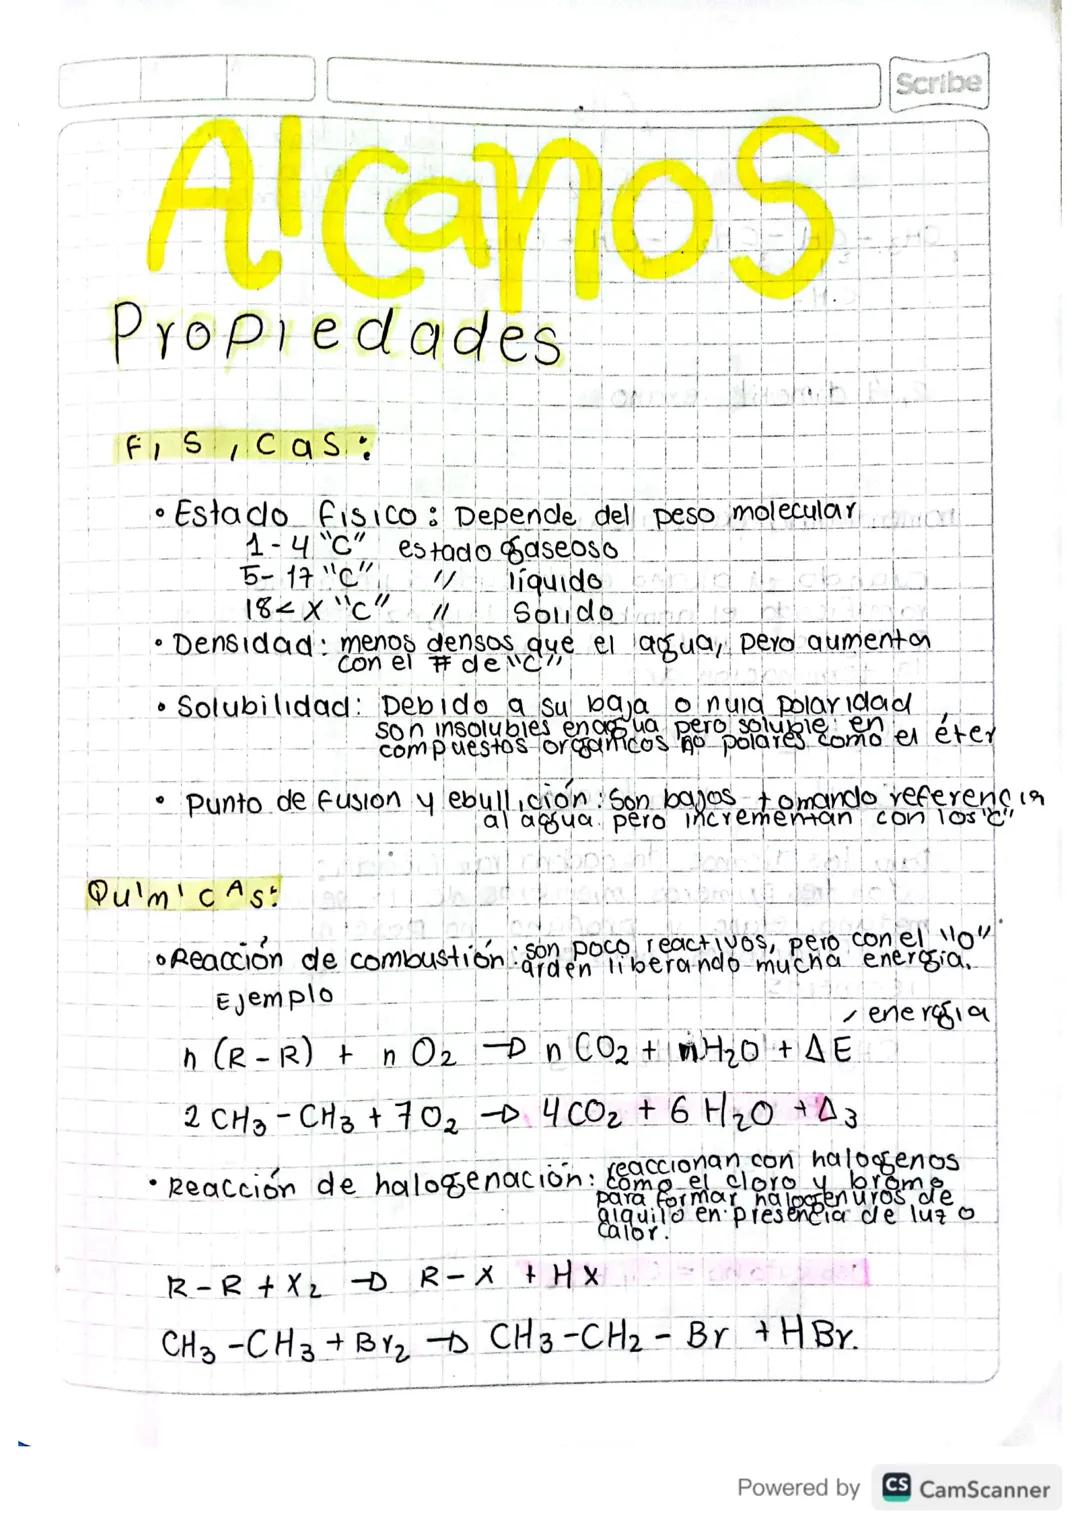 Scribe
Alcanos
Propiedades
Físicas:
• Estado físico: Depende del peso molecular
1-4 "C" estado gaseoso
5-17 "C" " líquido
18< X "C" " Solido
• Densidad: menos densos que el agua, pero aumenta
con el # de "C"
• Solubilidad: Debido a su baja o nula polaridad,
son insolubles en agua pero soluble en
compuestos organicos no polares como el éter
• Punto de fusion y ebullición: Son bajos tomando referencia
al agua pero incrementan con los "C"
Químicas:
• Reacción de combustión: son poco reactivos, pero con el "O"
arden liberando mucha energía.
Ejemplo
energía
n (R-R) + n O₂ → n CO₂ + n H₂O + ΔE
2 CH₃ - CH₃ + 7 O₂ → 4 CO₂ + 6 H₂O + Δ3
• Reacción de halogenación: reaccionan con halogenos
como el cloro y bromo
para formar halogenuros de
alquilo en presencia de luz o
calor.
R-R + X₂ → R-X + HX
CH₃-CH₃ + Br₂ → CH₃-CH₂-Br + HBr.
Powered by CS CamScanner